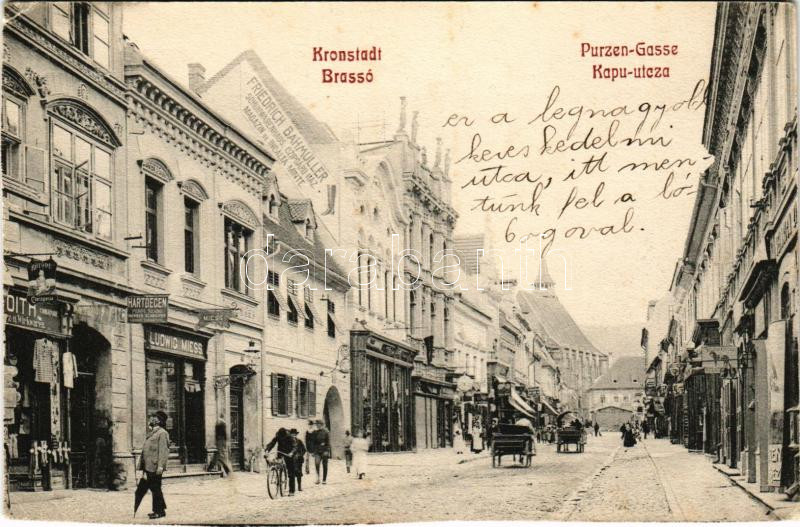 Kronstadt
Brassó
Purzen-Gasse
Kapu-utcza
er a legnagyobb
kereskedelmi
utca, itt men-
tünk fel a ló-
bogoval.
FRIEDRICH BAHMÜLLER
MAGAZIN
HARTDEGEN
LUDWIG MIESS
MIESS
darabanth